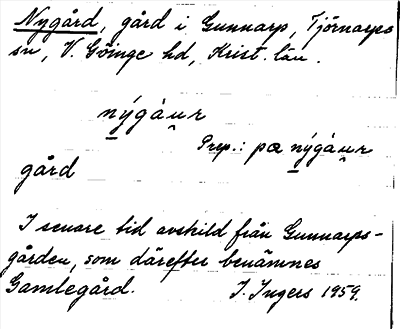 Nygård, gård i Gunnarp, Tjörnarps
sn, V. Göinge hd, Krist. län.
nýgàu̯r
Prep.: pα nýgàu̯r
gård
I senare tid avskild från Gunnarps-
gården, som därefter benämnes
Gamlegård. I. Ingers 1959.